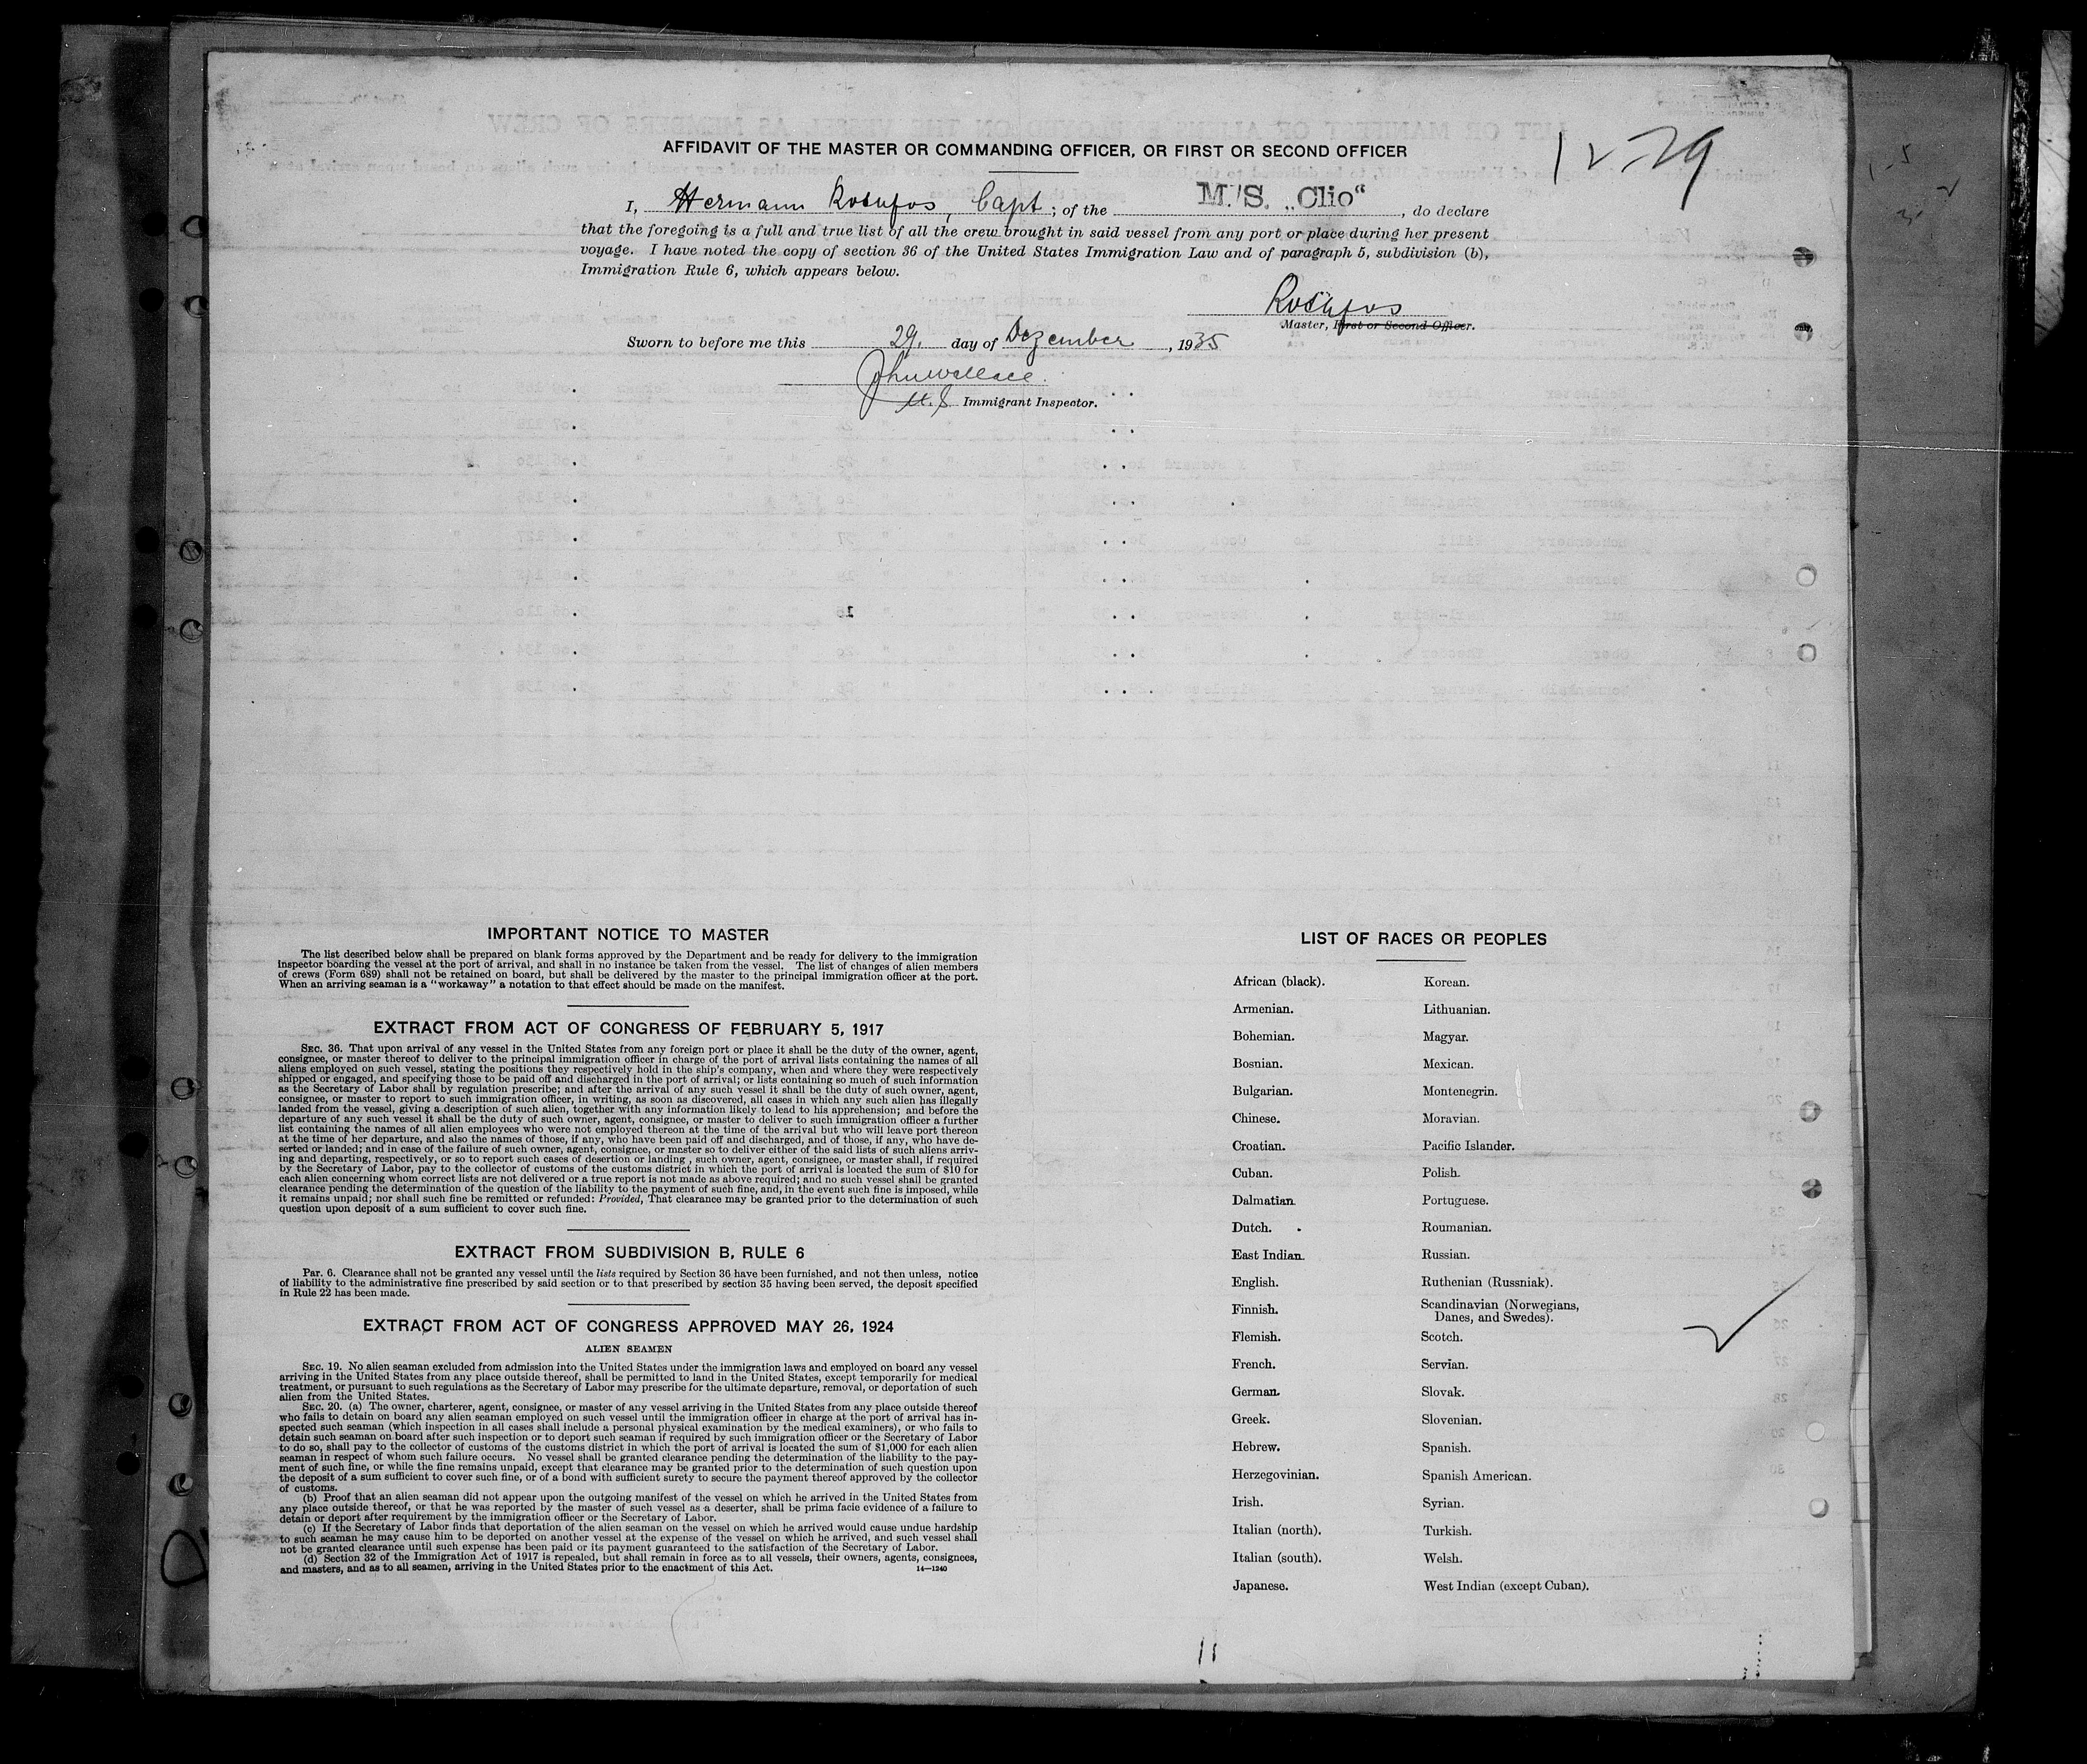 AFFIDAVIT OF THE MASTER OR COMMANDING OFFICER, OR FIRST OR SECOND OFFICER
12-29
I, Hermann, Capt; of the M./S. „Clio“, do declare
that the foregoing is a full and true list of all the crew brought in said vessel from any port or place during her present
voyage. I have noted the copy of section 36 of the United States Immigration Law and of paragraph 5, subdivision (b),
Immigration Rule 6, which appears below.
Master, First or Second Officer.
Sworn to before me this 29. day of Dezember, 1935
John Wallace.
U.S. Immigrant Inspector.
IMPORTANT NOTICE TO MASTER
The list described below shall be prepared on blank forms approved by the Department and be ready for delivery to the immigration
inspector boarding the vessel at the port of arrival, and shall in no instance be taken from the vessel. The list of changes of alien members
of crews (Form 689) shall not be retained on board, but shall be delivered by the master to the principal immigration officer at the port.
When an arriving seaman is a "workaway" a notation to that effect should be made on the manifest.
EXTRACT FROM ACT OF CONGRESS OF FEBRUARY 5, 1917
SEC. 36. That upon arrival of any vessel in the United States from any foreign port or place it shall be the duty of the owner, agent,
consignee, or master thereof to deliver to the principal immigration officer in charge of the port of arrival lists containing the names of all
aliens employed on such vessel, stating the positions they respectively hold in the ship's company, when and where they were respectively
shipped or engaged, and specifying those to be paid off and discharged in the port of arrival; or lists containing so much of such information
as the Secretary of Labor shall by regulation prescribe; and after the arrival of any such vessel it shall be the duty of such owner, agent,
consignee, or master to report to such immigration officer, in writing, as soon as discovered, all cases in which any such alien has illegally
landed from the vessel, giving a description of such alien, together with any information likely to lead to his apprehension; and before the
departure of any such vessel it shall be the duty of such owner, agent, consignee, or master to deliver to such immigration officer a further
list containing the names of all alien employees who were not employed thereon at the time of the arrival but who will leave port thereon
at the time of her departure, and also the names of those, if any, who have been paid off and discharged, and of those, if any, who have de-
serted or landed; and in case of the failure of such owner, agent, consignee, or master so to deliver either of the said lists of such aliens arriv-
ing and departing, respectively, or so to report such cases of desertion or landing, such owner, agent, consignee, or master shall, if required
by the Secretary of Labor, pay to the collector of customs of the customs district in which the port of arrival is located the sum of $10 for
each alien concerning whom correct lists are not delivered or a true report is not made as above required; and no such vessel shall be granted
clearance pending the determination of the question of the liability to the payment of such fine, and, in the event such fine is imposed, while
it remains unpaid; nor shall such fine be remitted or refunded: Provided, That clearance may be granted prior to the determination of such
question upon deposit of a sum sufficient to cover such fine.
EXTRACT FROM SUBDIVISION B, RULE 6
PAR. 6. Clearance shall not be granted any vessel until the lists required by Section 36 have been furnished, and not then unless, notice
of liability to the administrative fine prescribed by said section or to that prescribed by section 35 having been served, the deposit specified
in Rule 22 has been made.
EXTRACT FROM ACT OF CONGRESS APPROVED MAY 26, 1924
ALIEN SEAMEN
SEC. 19. No alien seaman excluded from admission into the United States under the immigration laws and employed on board any vessel
arriving in the United States from any place outside thereof, shall be permitted to land in the United States, except temporarily for medical
treatment, or pursuant to such regulations as the Secretary of Labor may prescribe for the ultimate departure, removal, or deportation of such
alien from the United States.
SEC. 20. (a) The owner, charterer, agent, consignee, or master of any vessel arriving in the United States from any place outside thereof
who fails to detain on board any alien seaman employed on such vessel until the immigration officer in charge at the port of arrival has in-
spected such seaman (which inspection in all cases shall include a personal physical examination by the medical examiners), or who fails to
detain such seaman on board after such inspection or to deport such seaman if required by such immigration officer or the Secretary of Labor
to do so, shall pay to the collector of customs of the customs district in which the port of arrival is located the sum of $1,000 for each alien
seaman in respect of whom such failure occurs. No vessel shall be granted clearance pending the determination of the liability to the pay-
ment of such fine, or while the fine remains unpaid, except that clearance may be granted prior to the determination of such question upon
the deposit of a sum sufficient to cover such fine, or of a bond with sufficient surety to secure the payment thereof approved by the collector
of customs.
(b) Proof that an alien seaman did not appear upon the outgoing manifest of the vessel on which he arrived in the United States from
any place outside thereof, or that he was reported by the master of such vessel as a deserter, shall be prima facie evidence of a failure to
detain or deport after requirement by the immigration officer or the Secretary of Labor.
(c) If the Secretary of Labor finds that deportation of the alien seaman on the vessel on which he arrived would cause undue hardship
to such seaman he may cause him to be deported on another vessel at the expense of the vessel on which he arrived, and such vessel shall
not be granted clearance until such expense has been paid or its payment guaranteed to the satisfaction of the Secretary of Labor.
(d) Section 32 of the Immigration Act of 1917 is repealed, but shall remain in force as to all vessels, their owners, agents, consignees,
and masters, and as to all seamen, arriving in the United States prior to the enactment of this Act.
14—1240
LIST OF RACES OR PEOPLES
African (black).
Armenian.
Bohemian.
Bosnian.
Bulgarian.
Chinese.
Croatian.
Cuban.
Dalmatian.
Dutch.
East Indian.
English.
Finnish.
Flemish.
French.
German.
Greek.
Hebrew.
Herzegovinian.
Irish.
Italian (north).
Italian (south).
Japanese.
Korean.
Lithuanian.
Magyar.
Mexican.
Montenegrin.
Moravian.
Pacific Islander.
Polish.
Portuguese.
Roumanian.
Russian.
Ruthenian (Russniak).
Scandinavian (Norwegians,
Danes, and Swedes).
Scotch.
Servian.
Slovak.
Slovenian.
Spanish.
Spanish American.
Syrian.
Turkish.
Welsh.
West Indian (except Cuban).
11